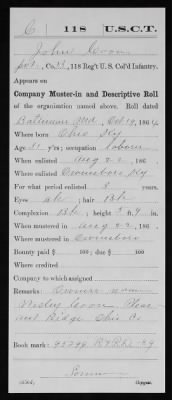 C | 118 | U.S.C.T.
John Coom
Pvt., Co. , 118 Reg't U. S. Col'd Infantry.
Appears on
Company Muster-in and Descriptive Roll
of the organization named above. Roll dated
Md. Oct 19, 1864
Where born Ohio Ky
Age 31 y'rs; occupation laborer
When enlisted Aug 22, 186
Where enlisted Owensboro Ky
For what period enlisted 3 years.
Eyes blk; hair Blk
Complexion Blk; height 5 ft. 9 in.
When mustered in Aug 22, 186
Where mustered in Owensboro
Bounty paid $ 100; due $ 100
Where credited
Company to which assigned
Remarks: Owners name
Wesley Coom Pleas
ant Ridge Ohio Co.
Book mark:
Copyist.